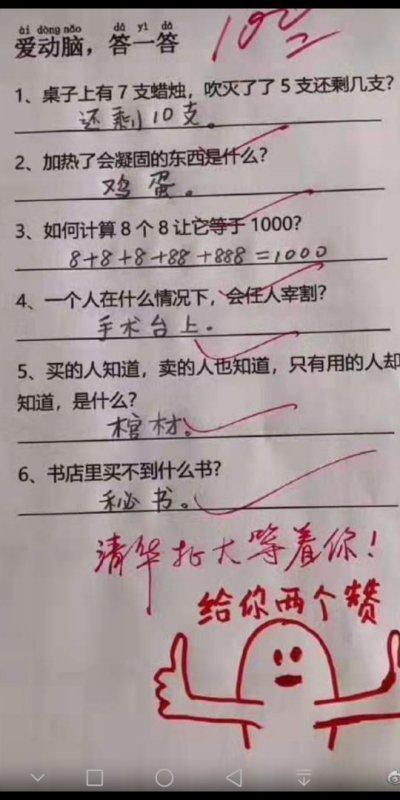 ài dòng nǎo dá yì dá
爱动脑，答一答
100
1、桌子上有7支蜡烛，吹灭了了5支还剩几支?
还剩10支。
2、加热了会凝固的东西是什么?
鸡蛋。
3、如何计算8个8让它等于1000?
8+8+8+88+888=1000
4、一个人在什么情况下，会任人宰割?
手术台上.
5、买的人知道，卖的人也知道，只有用的人却
知道，是什么?
棺材。
6、书店里买不到什么书?
秘书。
清华北大等着你!
给你两个赞